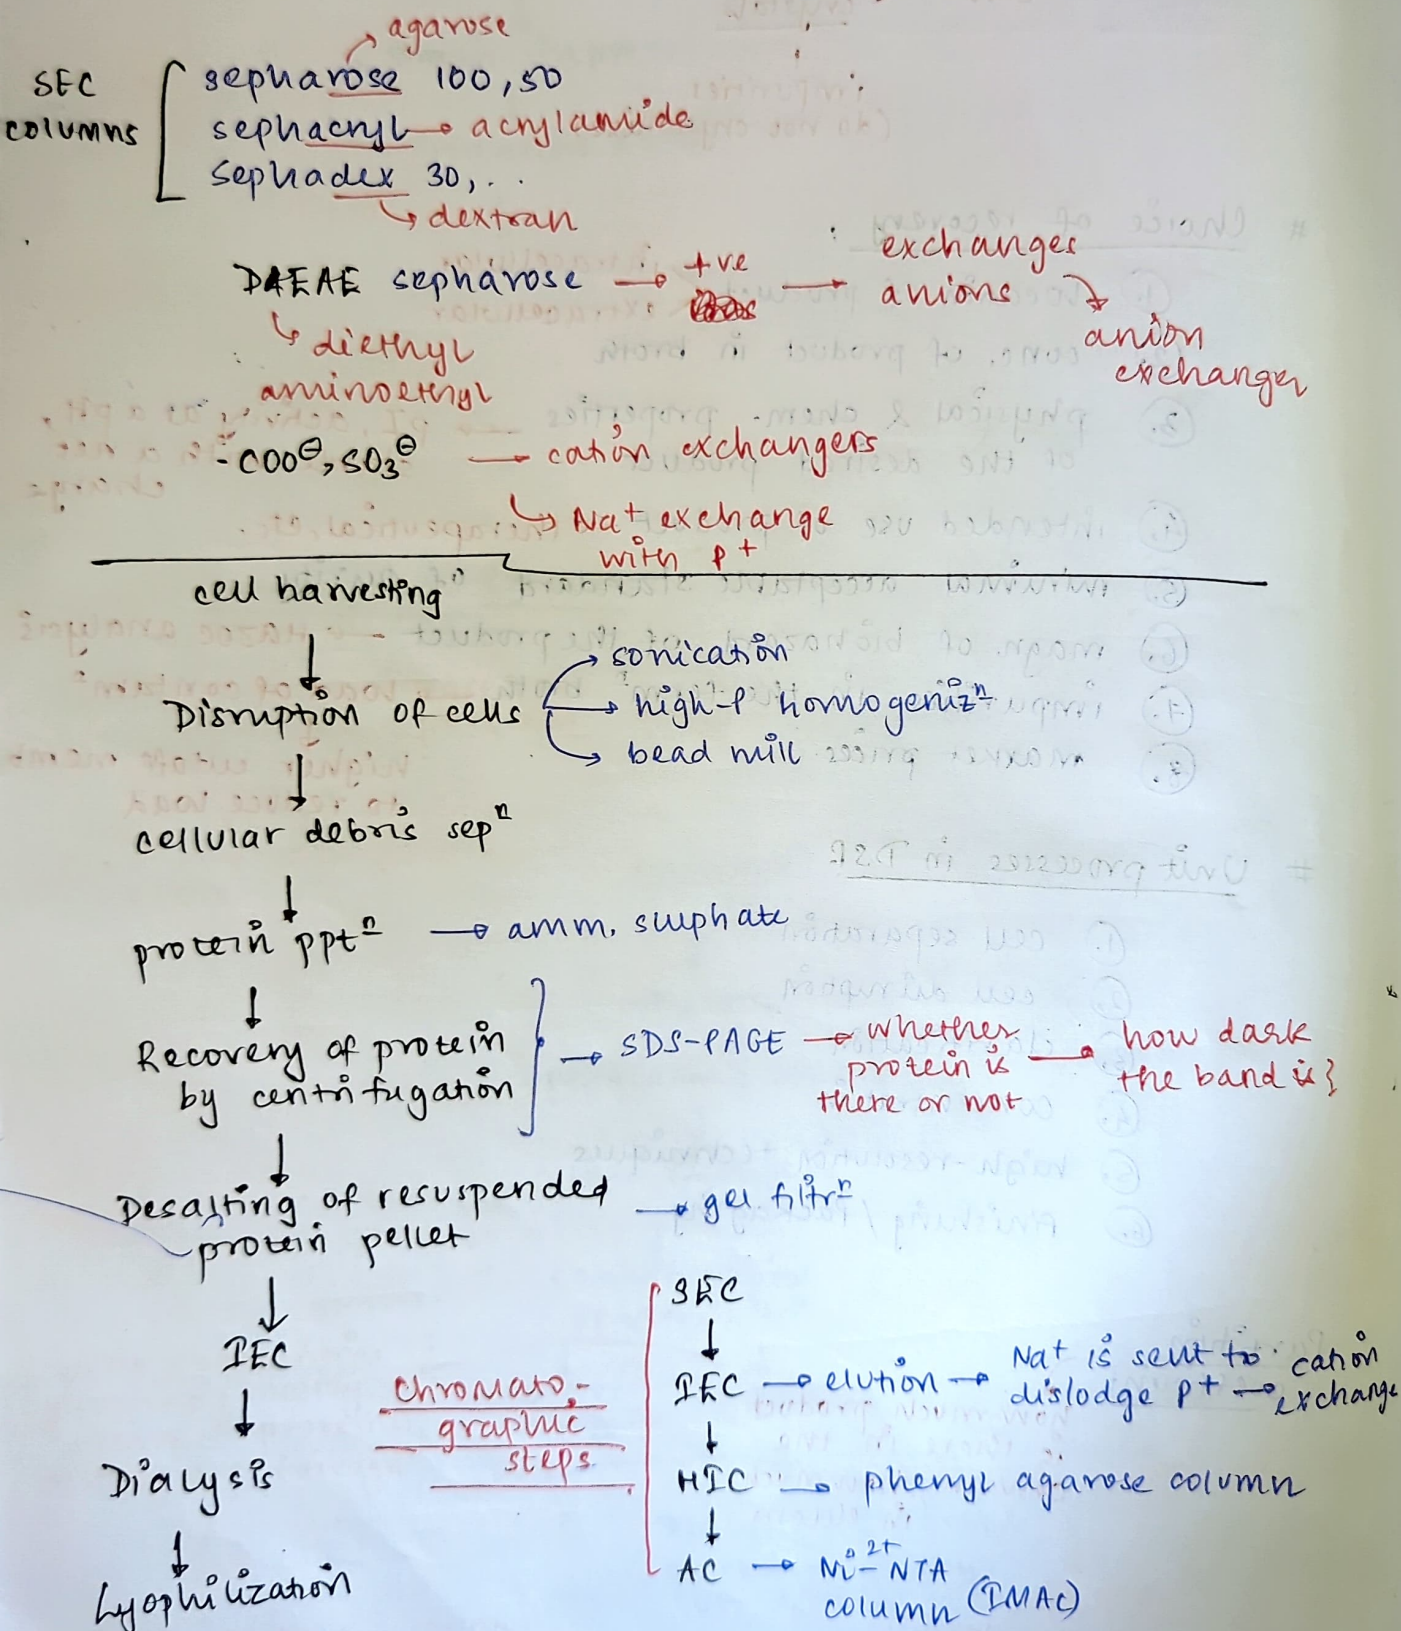 agarose
SEC
columns
sepharose 100, 50
sephacryl → acrylamide
sephadex 30, ..
↳ dextran
DAEAE sepharose → +ve → exchanges
anions
anion
exchanger
↳ diethyl
aminoethyl
-COO⊖, SO3⊖ → cation exchangers
↳ Na+ exchange
with P+
cell harvesting
↓
Disruption of cells
→ sonication
→ high-P homogenizⁿ
→ bead mill
↓
cellular debris sepⁿ
↓
protein pptⁿ → amm. sulphate
↓
Recovery of protein
by centrifugation
→ SDS-PAGE → whether
protein is
there or not
→ how dark
the band is}
↓
Desalting of resuspended
protein pellet
→ gel filtrⁿ
↓
IEC
↓
Dialysis
↓
Lyophilization
chromato-
graphic
steps
SEC
↓
IEC → elution → Na+ is sent to
dislodge P+ → cation
exchange
↓
HIC → phenyl agarose column
↓
AC → Ni²⁺-NTA
column (IMAC)